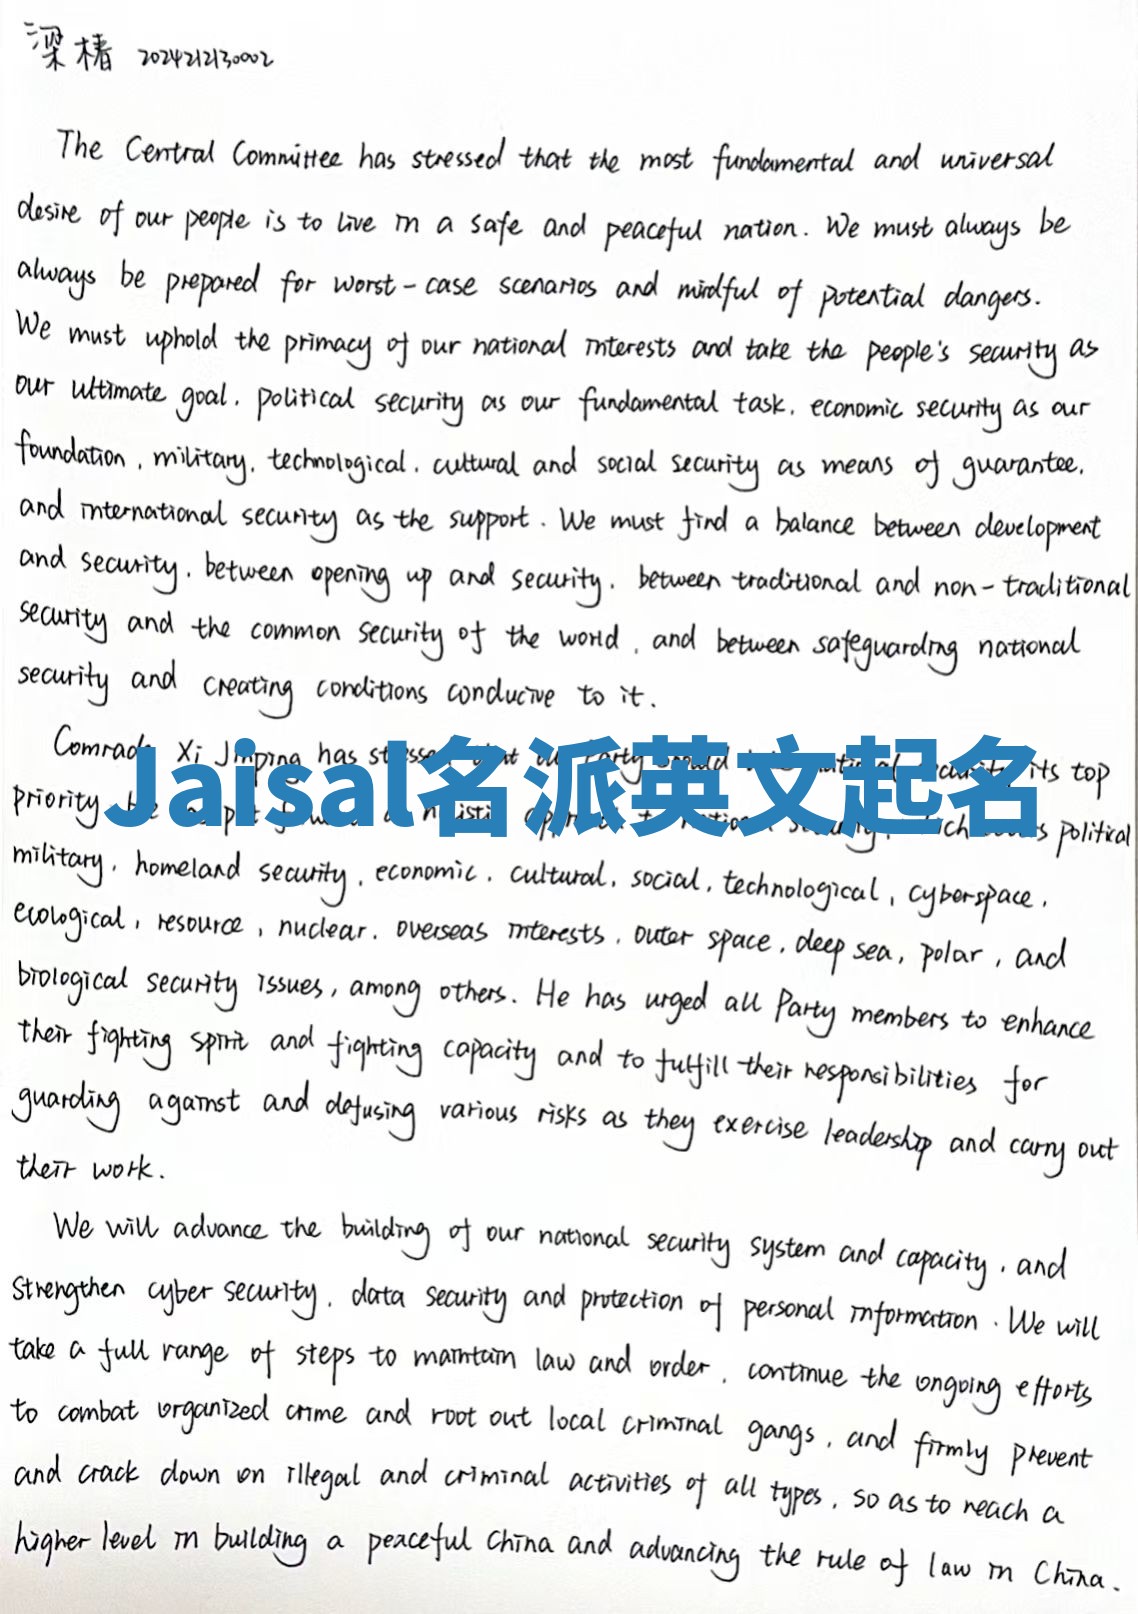 梁椿 2024212130002
The Central Committee has stressed that the most fundamental and universal
desire of our people is to live in a safe and peaceful nation. We must always be
always be prepared for worst-case scenarios and mindful of potential dangers.
We must uphold the primacy of our national interests and take the people's security as
our ultimate goal, political security as our fundamental task, economic security as our
foundation, military, technological, cultural and social security as means of guarantee,
and international security as the support. We must find a balance between development
and security, between opening up and security, between traditional and non-traditional
security and the common security of the world, and between safeguarding national
security and creating conditions conducive to it.
Comrade Xi Jinping has stressed that our Party should its top
Jaisal名派英文起名
priority political
military, homeland security, economic, cultural, social, technological, cyberspace,
ecological, resource, nuclear, overseas interests, outer space, deep sea, polar, and
biological security issues, among others. He has urged all Party members to enhance
their fighting spirit and fighting capacity and to fulfill their responsibilities for
guarding against and defusing various risks as they exercise leadership and carry out
their work.
We will advance the building of our national security system and capacity, and
strengthen cyber security, data security and protection of personal information. We will
take a full range of steps to maintain law and order, continue the ongoing efforts
to combat organized crime and root out local criminal gangs, and firmly prevent
and crack down on illegal and criminal activities of all types, so as to reach a
higher level in building a peaceful China and advancing the rule of law in China.